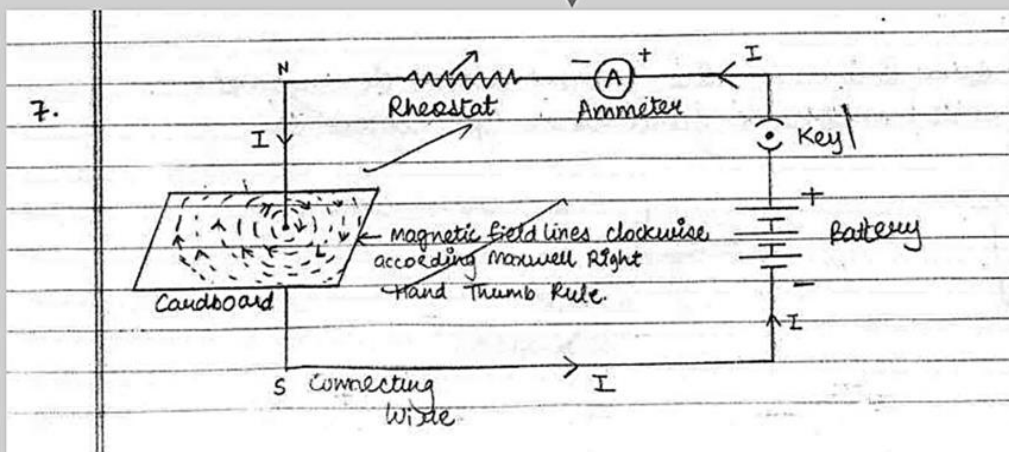 7.
N
- A +
I
Rheostat
Ammeter
I
Key
+
Battery
-
magnetic field lines clockwise
according Maxwell Right
Hand Thumb Rule.
Cardboard
I
S
Connecting
Wire
I